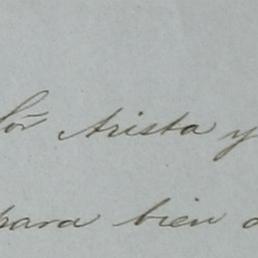 Sōr Arista y
para bien d